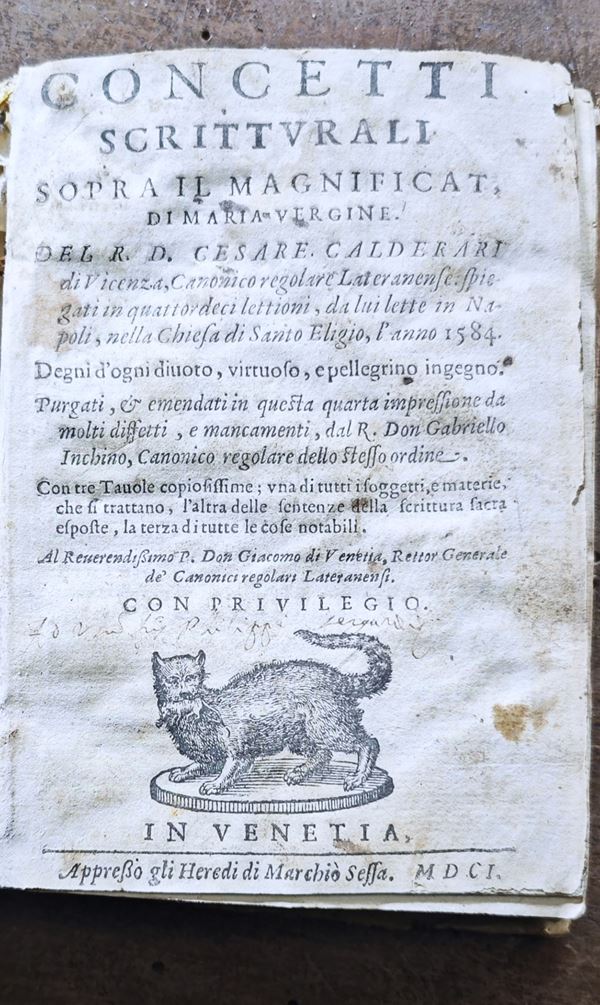 CONCETTI
SCRITTVRALI
SOPRA IL MAGNIFICAT,
DI MARIA VERGINE.
DEL R. D. CESARE CALDERARI
di Vicenza, Canonico regolare Lateranense. spie-
gati in quattordeci lettioni, da lui lette in Na-
poli, nella Chiesa di Santo Eligio, l'anno 1584.
Degni d'ogni diuoto, virtuoso, e pellegrino ingegno.
Purgati, & emendati in questa quarta impressione da
molti diffetti, e mancamenti, dal R. Don Gabriello
Inchino, Canonico regolare dello stesso ordine.
Con tre Tauole copiosissime; vna di tutti i soggetti, e materie,
che si trattano, l'altra delle sentenze della scrittura sacra
esposte, la terza di tutte le cose notabili.
Al Reuerendissimo P. Don Giacomo di Venetia, Rettor Generale
de' Canonici regolari Lateranensi.
CON PRIVILEGIO.
IN VENETIA,
Appresso gli Heredi di Marchiò Sessa. MDCI.